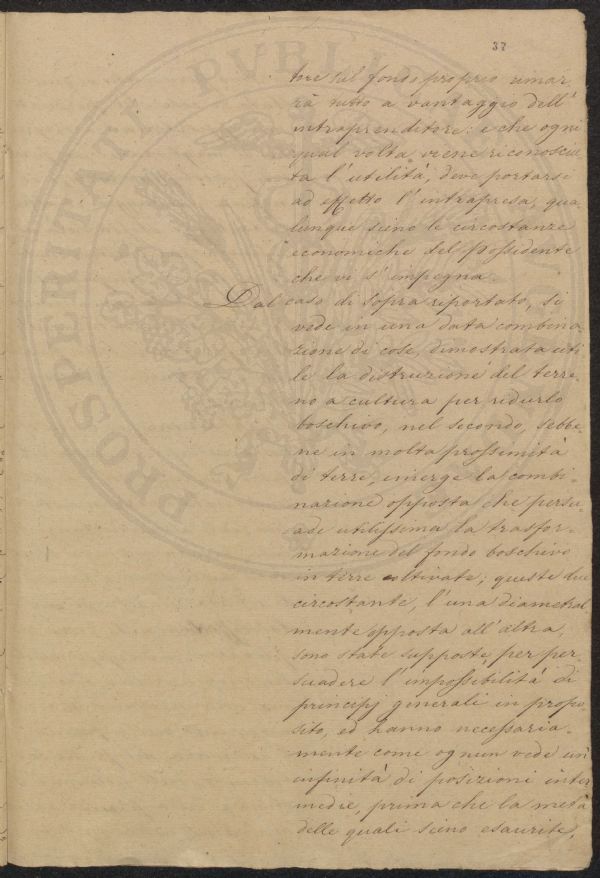 37
tore sul fondo proprio rimar,
rà tutto a vantaggio dell'
intraprenditore: e che ogni
qual volta viene riconosciu,
ta l'utilità, deve portarsi
ad effetto l'intrapresa, qua,
lunque sieno le circostanze
economiche del possidente
che vi s'impegna.
Dal caso di sopra riportato, si
vede in una data combina,
zione di cose, dimostrata uti
le la distruzione del terre,
no a cultura per ridurlo
boschivo, nel secondo, sebbe,
ne in molta prossimità
di terre, emerge la combi,
nazione opposta che persu,
ade utilissima la trasfor,
mazione del fondo boschivo
in terre coltivate; queste due
circostante, l'una diametral
mente opposta all'altra,
sono state supposte, per per,
suadere l'impossibilità di
principj generali in propo,
sito, ed hanno necessaria,
mente come ognun vede un'
infinità di posizioni inter
medie, prima che la metà
delle quali sieno esaurite,
PROSPERITATI PUBLICAE